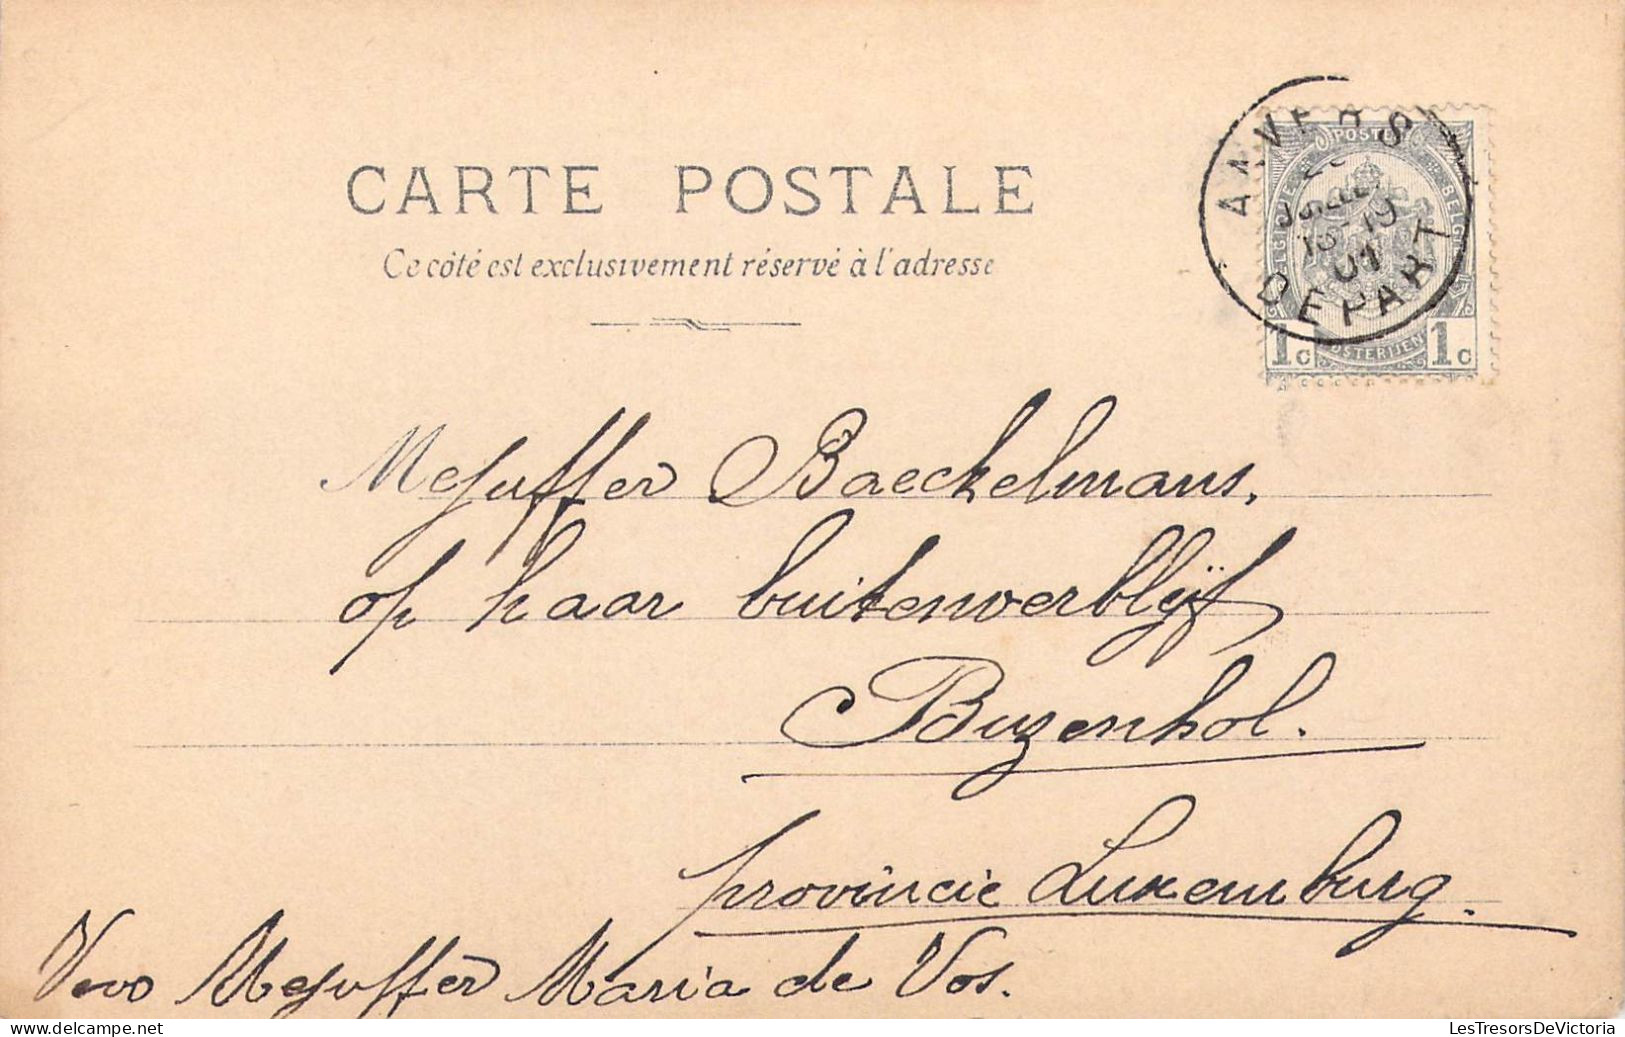 CARTE POSTALE
Ce côté est exclusivement réservé à l'adresse
ANVERS
JUILLET
18-19
01
DEPART
POSTES
BELGIQUE
BELGIË
POSTERIJEN
1c 1c
Mejuffer Baeckelmans,
op haar buitenverblijf
Buzenhol.
provincie Luxemburg.
Mejuffer Maria de Vos.
LesTresorsDeVictoria